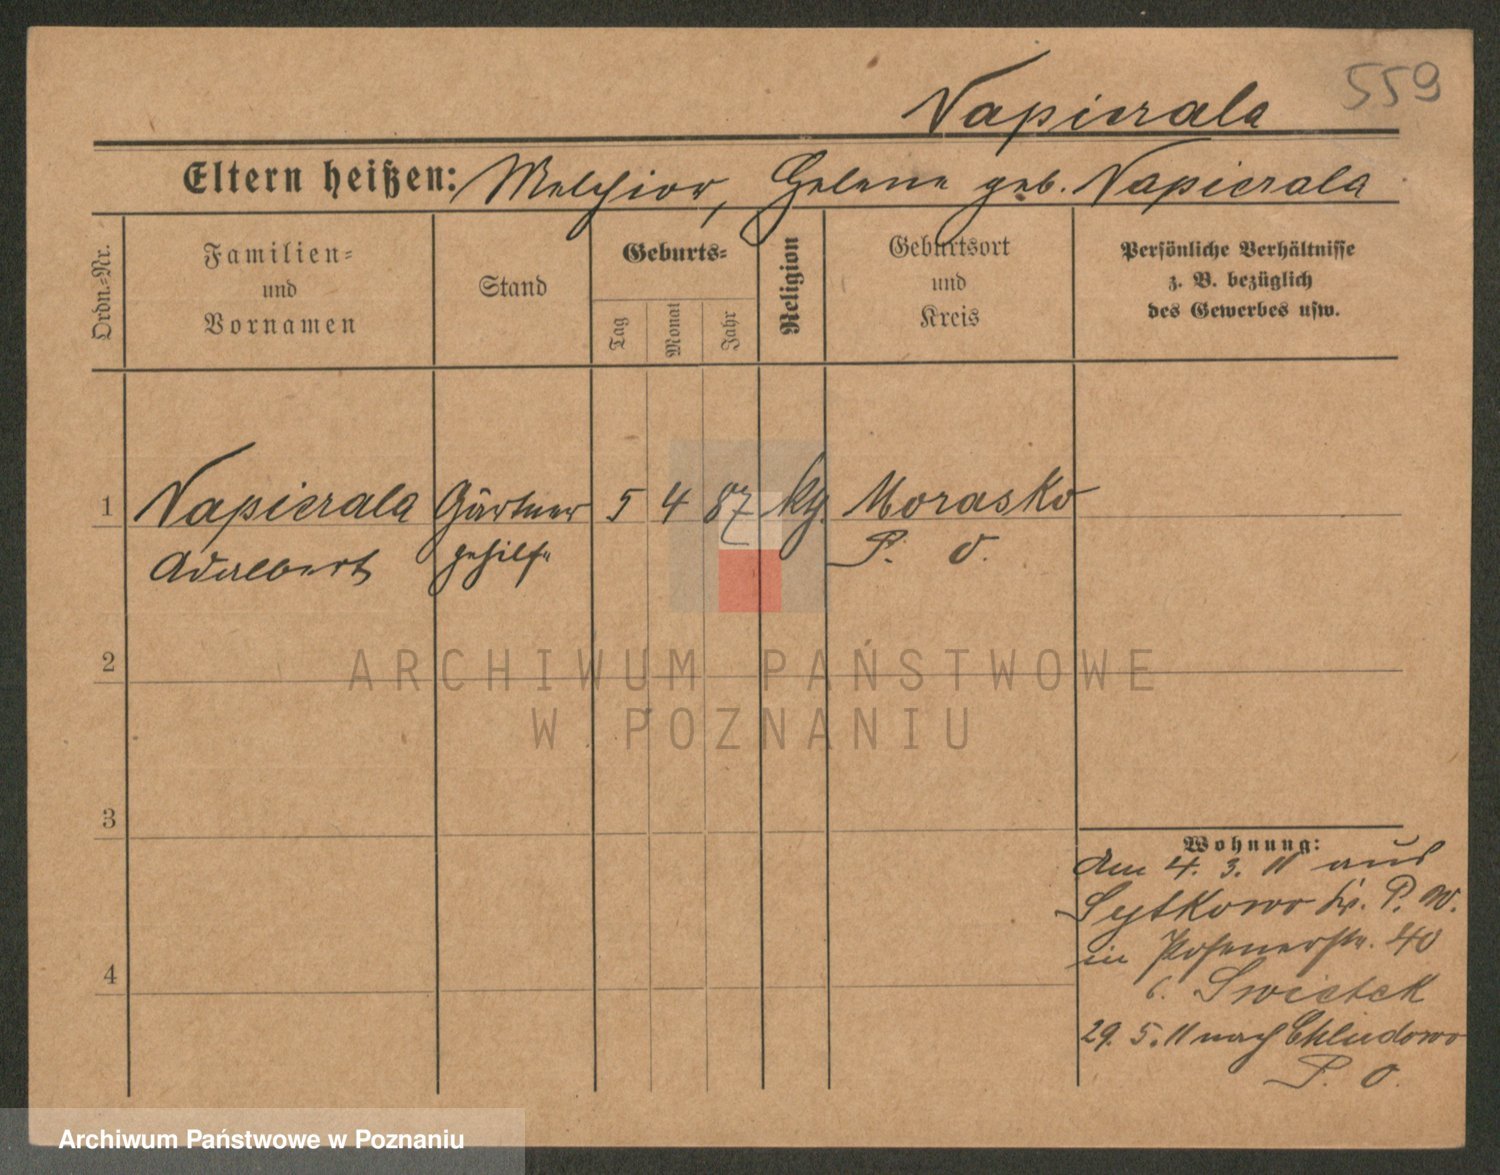 559
Napierala
Eltern heißen: Melchior, Helene geb. Napierala
Ordn.=Nr.
Familien=
und
Vornamen
Stand
Geburts=
Tag
Monat
Jahr
Religion
Geburtsort
und
Kreis
Persönliche Verhältnisse
z. B. bezüglich
des Gewerbes usw.
1 Napierala Gärtner 5 4 87 kth. Morasko
Adalbert gehilfe P. O.
2
3
4
Wohnung:
Am 4. 3. 11 aus
Sytkowo Kr. P. W.
in Posenerstr. 40
b. Swietek
29. 5. 11 nach Chludowo
P. O.
ARCHIWUM PAŃSTWOWE
W POZNANIU
Archiwum Państwowe w Poznaniu